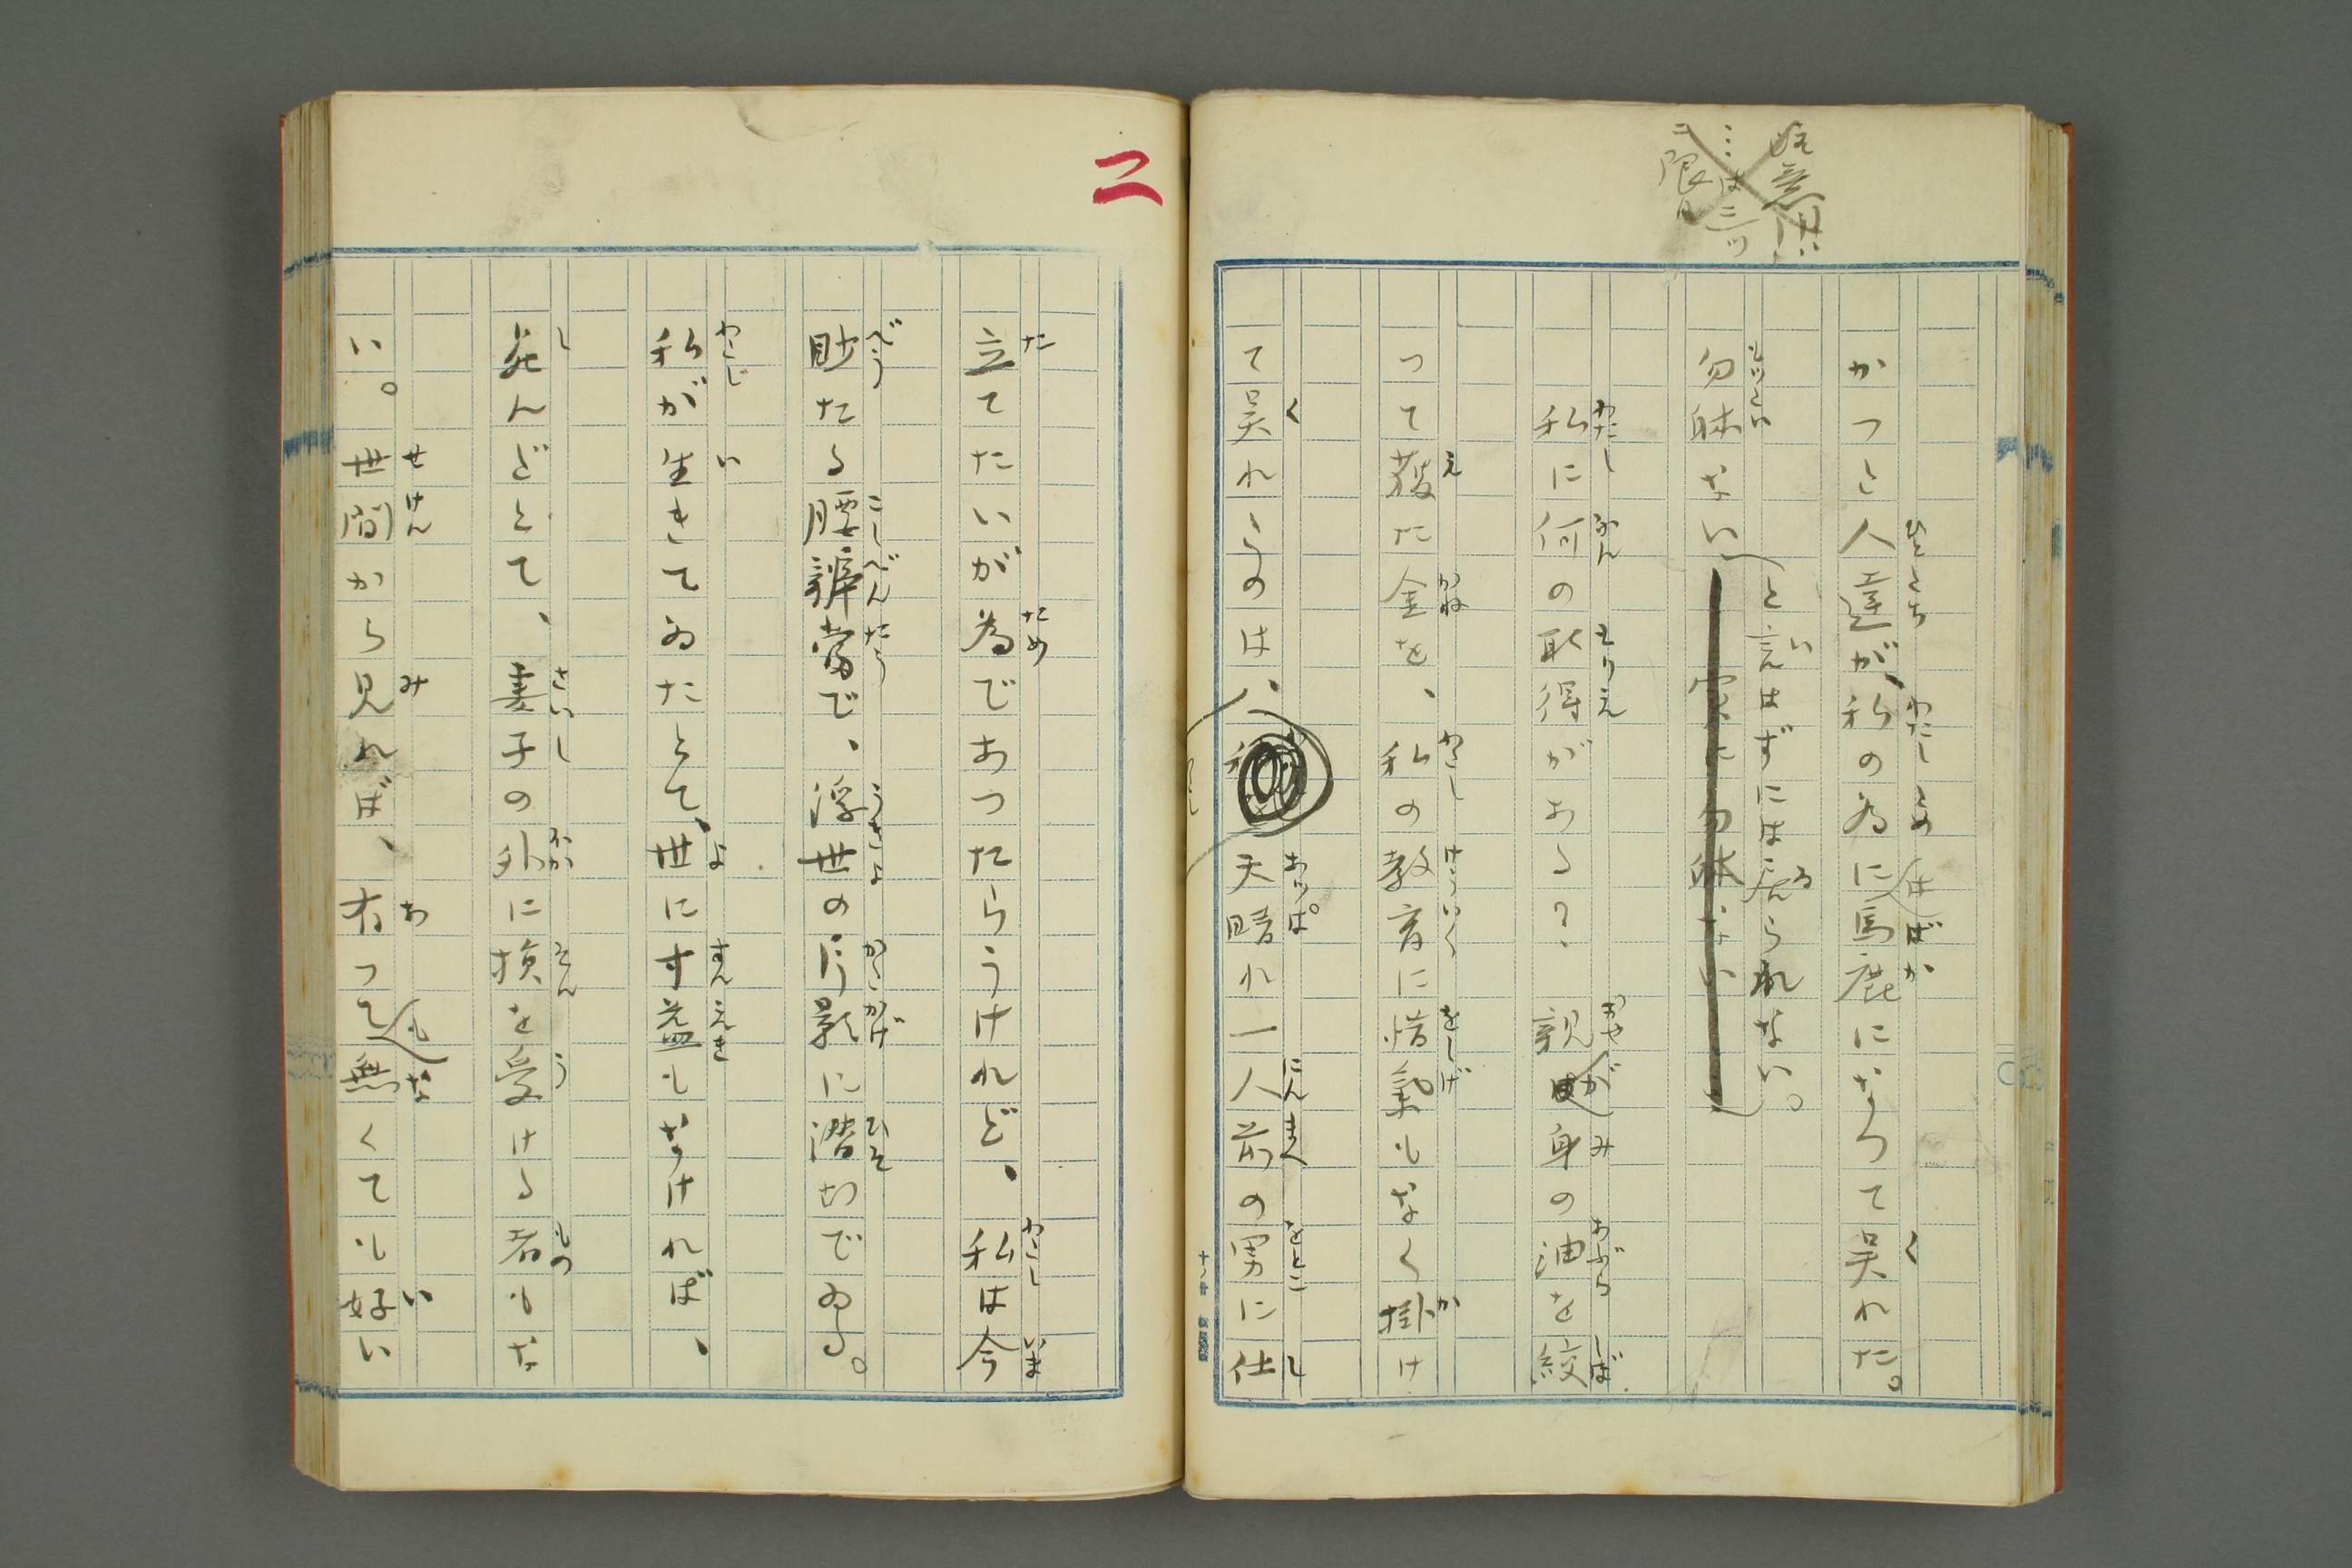 かつた人達が、私の為には馬鹿になつて呉れた。
勿体ないと言はずには居られない。
私に何の取得がある？ 親が身の油を絞
つて獲た金を、私の教育に惜気もなく掛け
て呉れたのは、天晴れ一人前の男に仕
二
立てたいが為であつたらうけれど、私は今
眇たる腰辨當で、浮世の片影に潜んでゐる。
私が生きてゐたとて、世に寸益もなければ、
死んだとて、妻子の外に損を受ける者もな
い。世間から見れば、有つても無くても好い